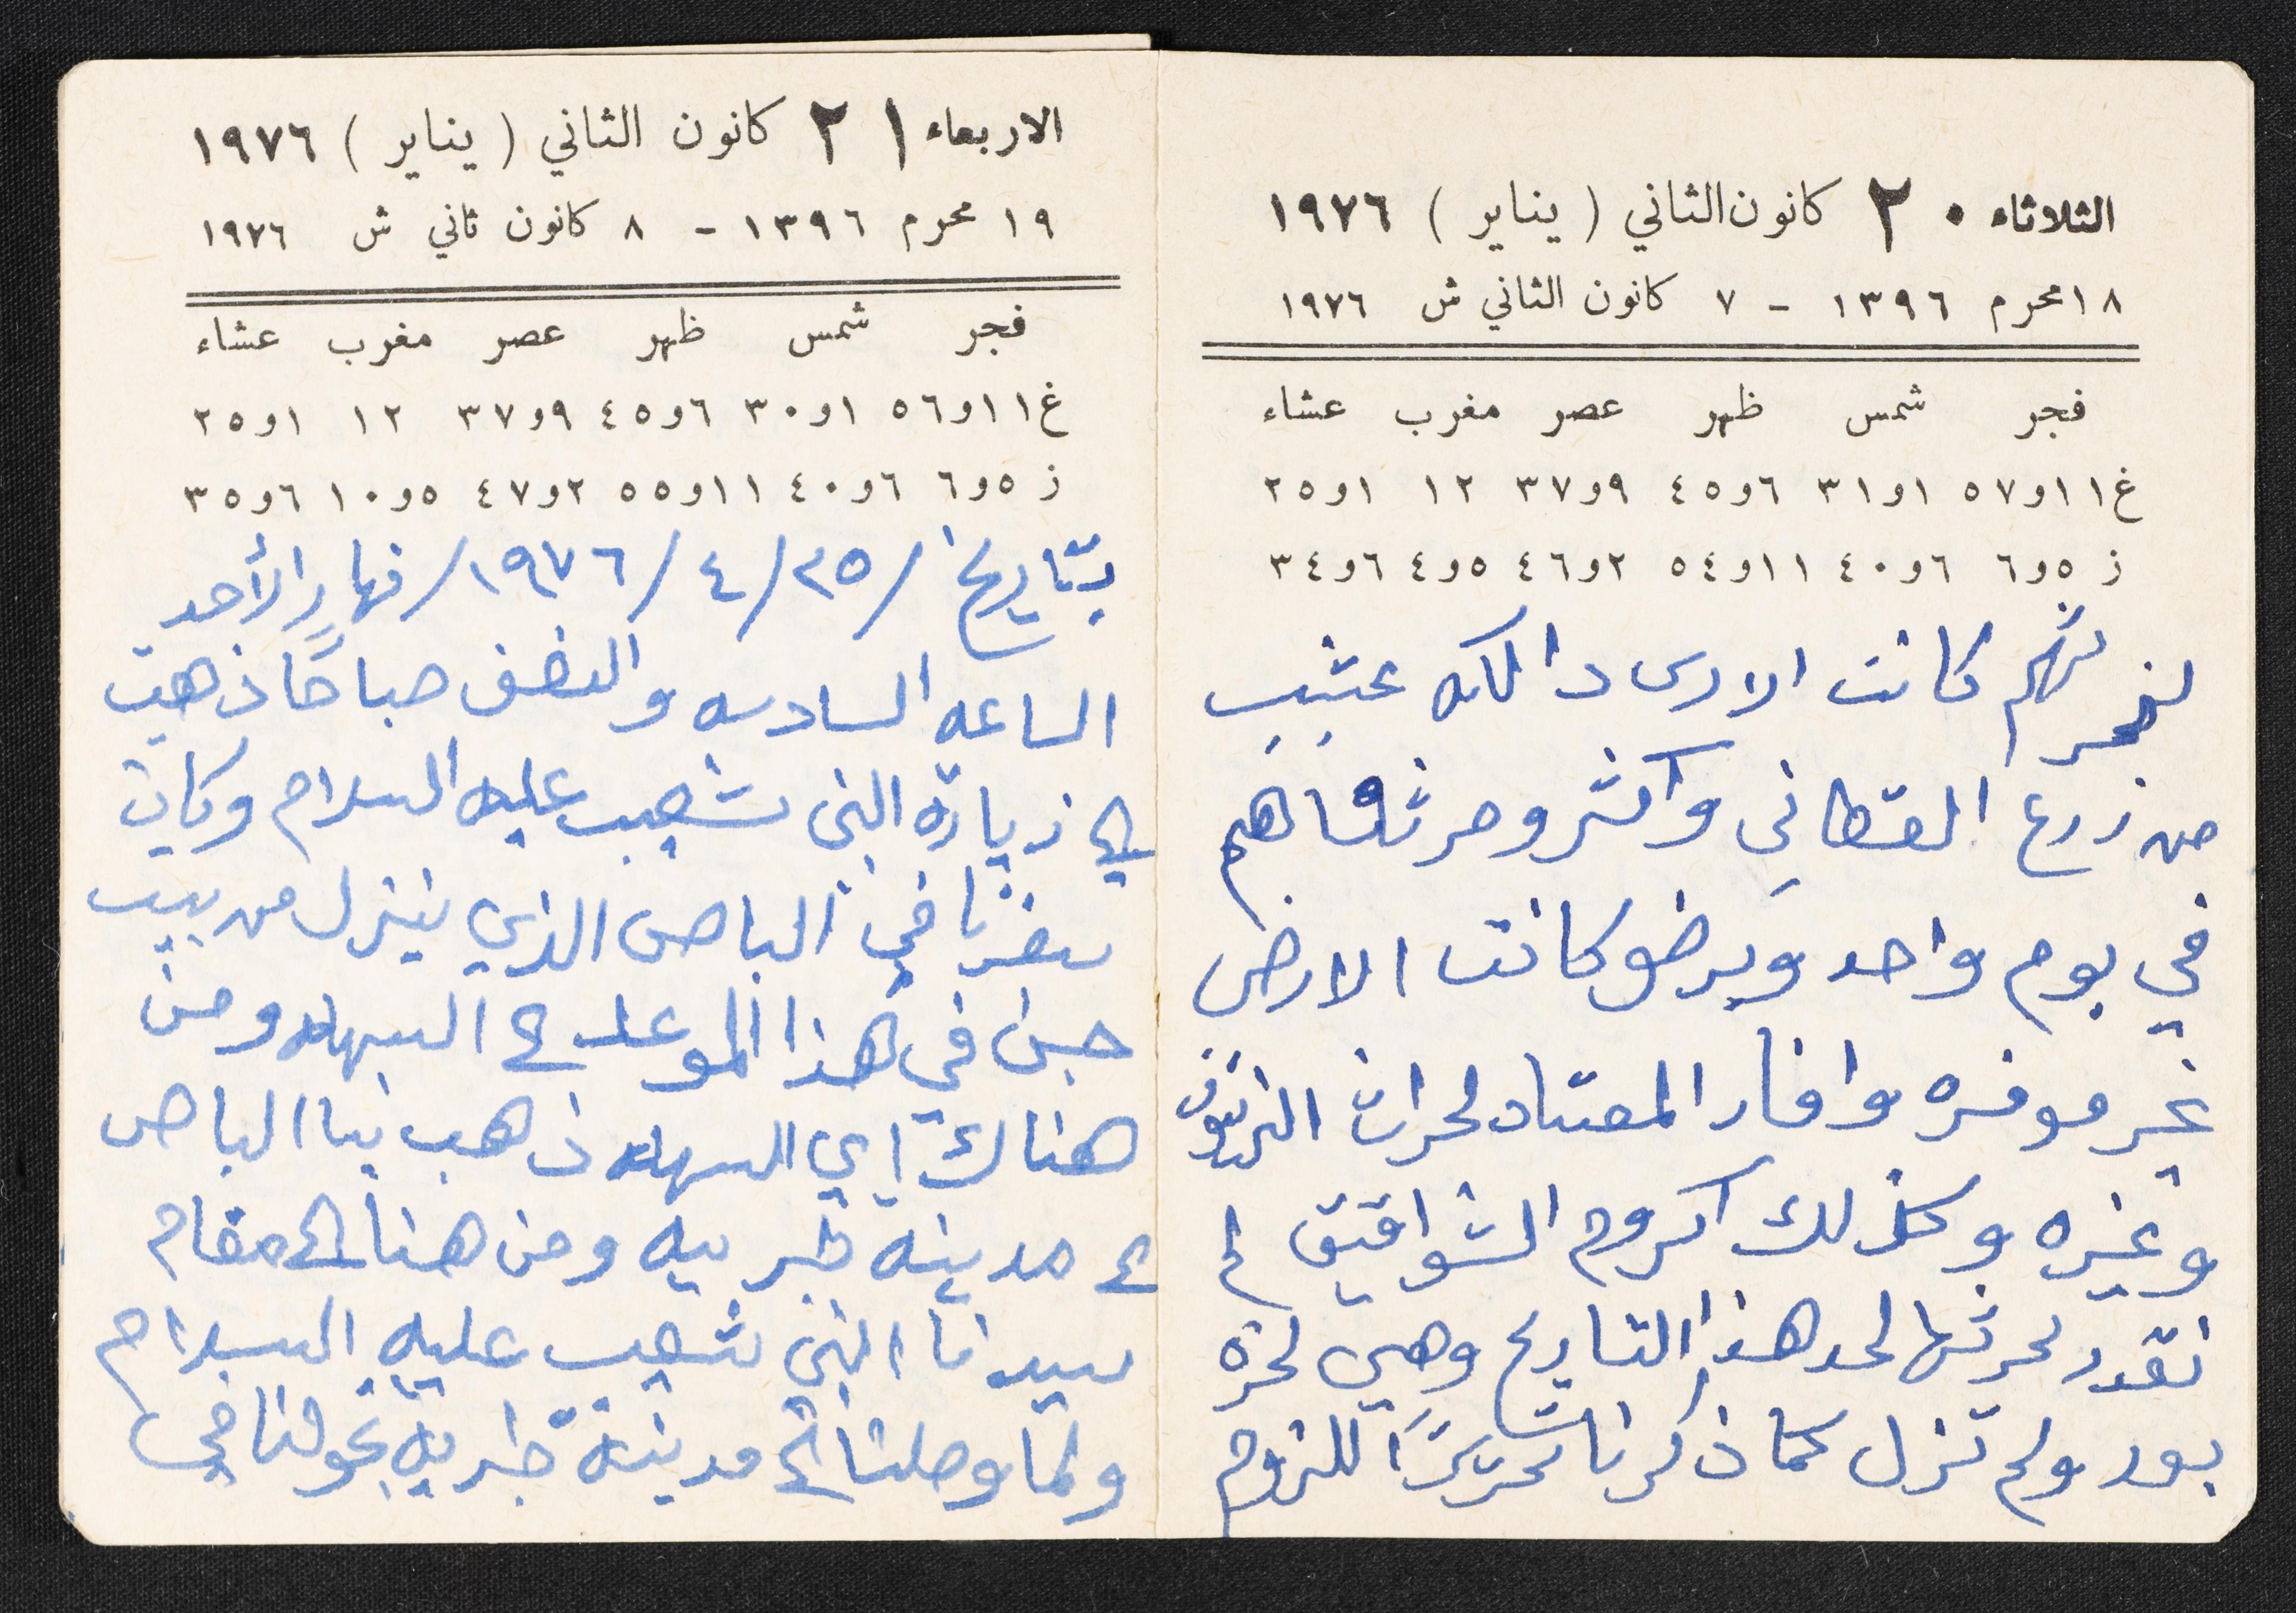 الثلاثاء ٢٠ كانون الثاني ( يناير ) ١٩٧٦
١٨ محرم ١٣٩٦ - ٧ كانون الثاني ش ١٩٧٦
فجر شمس ظهر عصر مغرب عشاء
غ ١١و٥٧ ١و٣١ ٦و٤٥ ٩و٣٧ ١٢ ١و٢٥
ز ٥و٦ ٦و٤٠ ١١و٥٤ ٢و٤٦ ٥و٤ ٦و٣٤
كانت الارض دالكه عشب
من زرع القطاني واكثر وحرثناهم
في يوم واحد وبرضو كانت الارض
غير موفره وافار المعتاد لحراث الزيتون
وغيره وكذلك اكروم الشواقيق لم
نقدر لحرثها لحد هذا التاريخ وهي لخره
بعد ولم تزل كما ذكرنا تحريرًا للزوم
الاربعاء ٢١ كانون الثاني ( يناير ) ١٩٧٦
١٩ محرم ١٣٩٦ - ٨ كانون ثاني ش ١٩٧٦
فجر شمس ظهر عصر مغرب عشاء
غ ١١و٥٦ ١و٣٠ ٦و٤٥ ٩و٣٧ ١٢ ١و٢٥
ز ٥و٦ ٦و٤٠ ١١و٥٥ ٢و٤٧ ٥و١٠ ٦و٣٥
بتاريخ /٢٥/٤/١٩٧٦/ نهار الأحد
الساعه السادسه والنصف صباحًا ذهبت
الى زيارة النبي شعيب عليه السلام وكان
سفرنا في الباص الذي ينزل من بيت
جن في هذا الموعد الى السهله ومن
هناك اي السهله ذهب بنا الباص
الى مدينة طبريه ومن هنا الى مقام
سيدنا النبي شعيب عليه السلام
ولما وصلنا الى مدينة طبريه تحولنا في